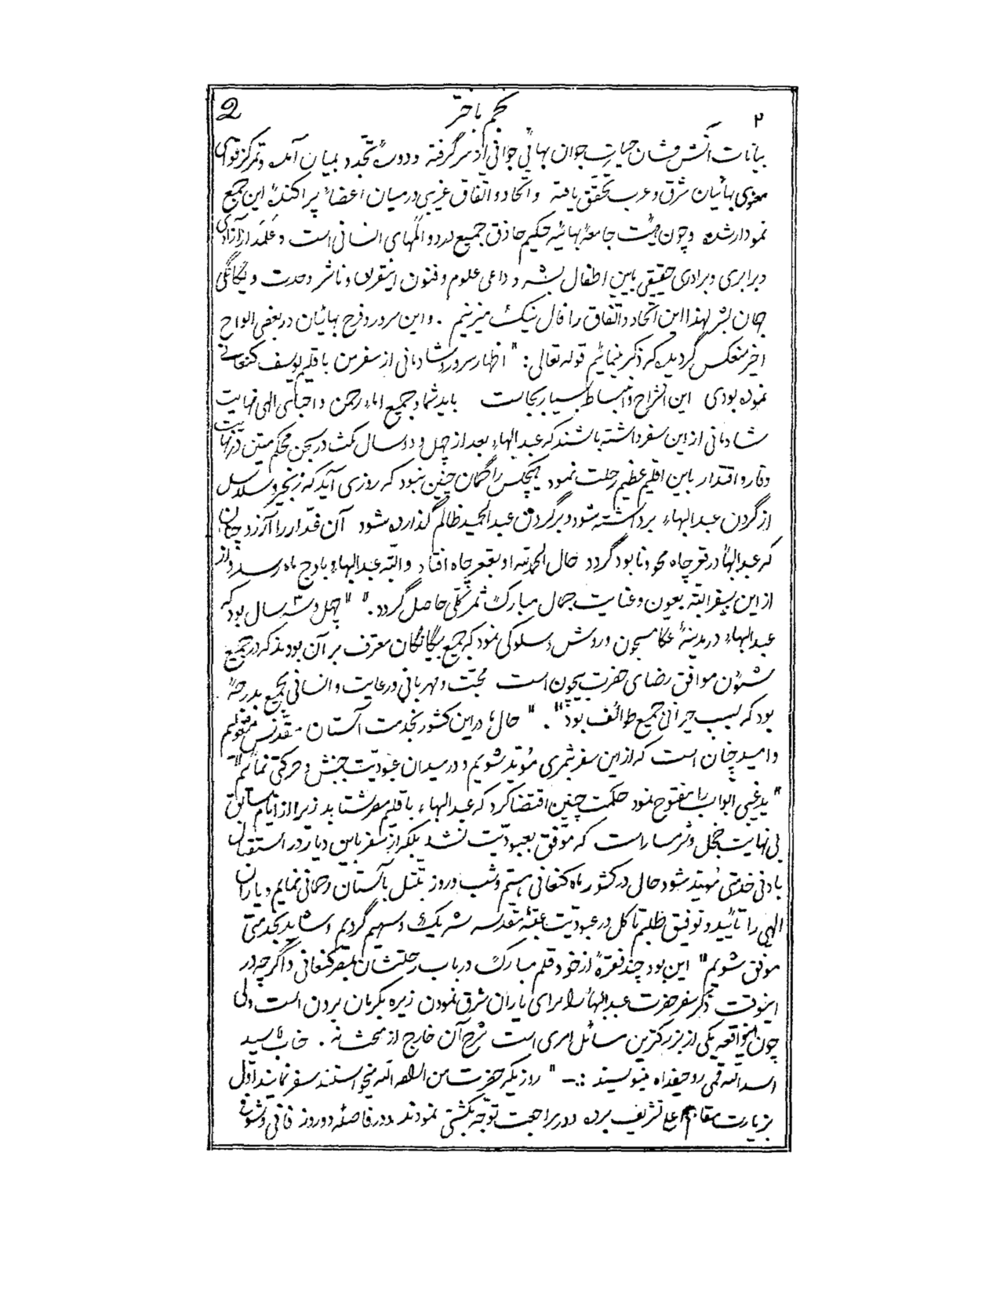 ۲ نجم باختر 2
بیانات آتش فشان حیات جوان بهائی جوانی از سر گرفته و دورهٔ تجدد بمیان آمده و تمرکز قوای
معنوی بهائیان شرق و غرب تحقق یافته و اتحاد و اتفاق غریبی در میان اعضاء پراکندهٔ این جمع
نمودار شده و چون هیئت جامعهٔ بهائیه حکیم حاذق جمیع درد و المهای انسانی است و علمدار آزادی
و برابری و برادری حقیقی بین اطفال بشر و داعی علوم و فنون و ناشر وحدت و یگانگی
جهان بشر لهذا این اتحاد و اتفاق را فال نیک میزنیم . و این سرور و فرح بهائیان در بعضی الواح
اخیر منعکس گردیده که ذکر مینمائیم قوله تعالی : " اظهار سرور و شادمانی از سفر من باقلیم یوسف کنعانی
نموده بودی این انشراح و انبساط بسیار بجاست باید شما و جمیع اماء رحمن و احبای الهی نهایت
شادمانی از این سفر داشته باشند که عبدالبهاء بعد از چهل و دو سال مکث در سجن محکم متین در نهایت
وقار و اقتدار باین اقلیم عظیم رحلت نمود هیچکس را گمان چنین نبود که روزی آید که زنجیر و سلاسل
از گردن عبدالبهاء برداشته شود و بر گردن عبدالحمید ظالم گذارده شود آن غدار را آرزو چنان
که عبدالبهاء در قعر چاه محو و نابود گردد حال الحمدلله او بقعر چاه افتاد و البته عبدالبهاء باوج ماه رسد و از
از این سفر البته بعون و عنایت جمال مبارک ثمر کلی حاصل گردد . " " چهل و سه سال بود که
عبدالبهاء در مدینهٔ عکا مسجون و روش و سلوکی نمود که جمیع بیگانگان معترف بر آن بودند که در جمیع
شئون موافق رضای حضرت بیچون است محبت و مهربانی و رعایت و انسانی بجمیع بدرجهٔ
بود که سبب حیرانی جمیع طوائف بود " . " حال در این کشور بخدمت آستان مقدس مشغولم
و امید چنان است که از این سفر ثمری مؤید شویم و در میدان عبودیت جنبش و حرکتی نمائیم "
" ید غیبی ابواب را مفتوح نمود حکمت چنین اقتضا کرد که عبدالبهاء باقلیم مصر شتابد زیرا از ایام سابق
بی نهایت خجل و شرمسار است که موفق بعبودیت نشد بلکه از سفر باین دیار در استقبال
بادنی خدمتی مؤید شود حال در کشور ماه کنعانی هستم و شب و روز بتبتل بآستان رحمانی نمایم و یاران
الهی را تأیید و توفیق طلبم تا کل در عبودیت عتبهٔ مقدسه شریک و سهیم گردیم و شاید بخدمتی
موفق شویم " این بود چند فقرهٔ از خود قلم مبارک در باب رحلتشان بمصر کنعانی و اگرچه در
اینوقت ذکر سفر حضرت عبدالبهاء را برای یاران شرق نمودن زیره بکرمان بردن است ولی
چون اینواقعه یکی از بزرکترین مسائل امری است شرح آن خارج از محل نه . جناب سید
اسد الله قمی روحیفداه مینویسند :– " روزیکه حضرت من اراده الله میخواستند سفر نمایند اول
بزیارت مقام اعلی تشریف برده در مراجعت توجه بکشتی نمودند و در فاصلهٔ دو روز فانی و شوقی